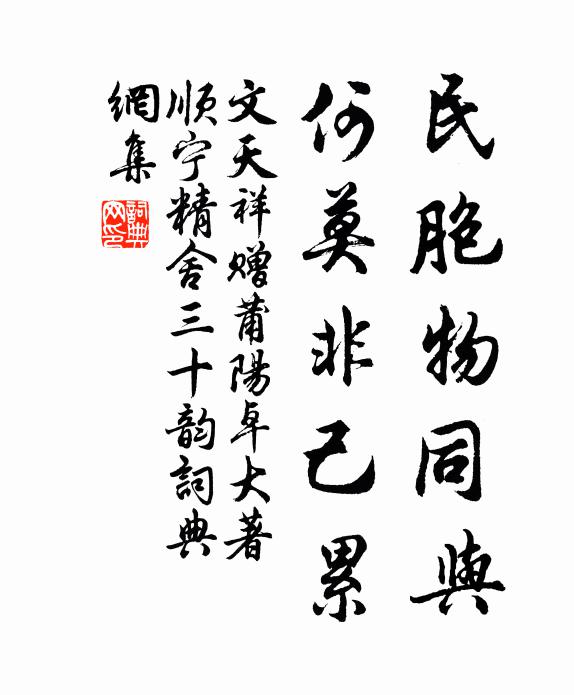 民胞物同與
何莫非己累
文天祥贈莆陽卓大著
順宁精舍三十韵詞
典
網集
詞典
网印